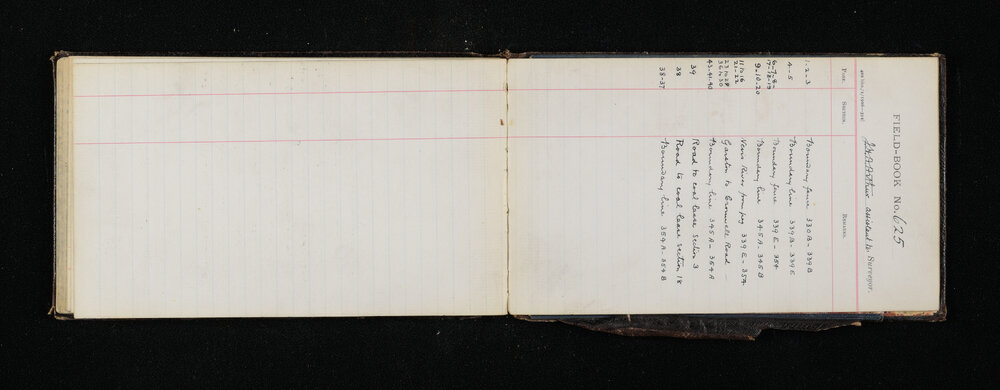 FIELD-BOOK No. 625
assistant to Surveyor.
PAGE. SECTION. REMARKS.
1-2-3 Boundary fence 330A - 339B
4-5 Boundary line 339B - 339E
6-7-8- 17-18-19 Boundary fence 339E - 354
9-10-20 Boundary line 345A - 345B
11 to 16 21-22 Nevis River from peg 339E - 354
23 to 28 36 to 30 Garston to Cromwell Road
43-41-40 Boundary line 345A - 354A
39 Road to coal lease section 3
38 Road to coal lease section 18
38-37 Boundary line 354A - 354B